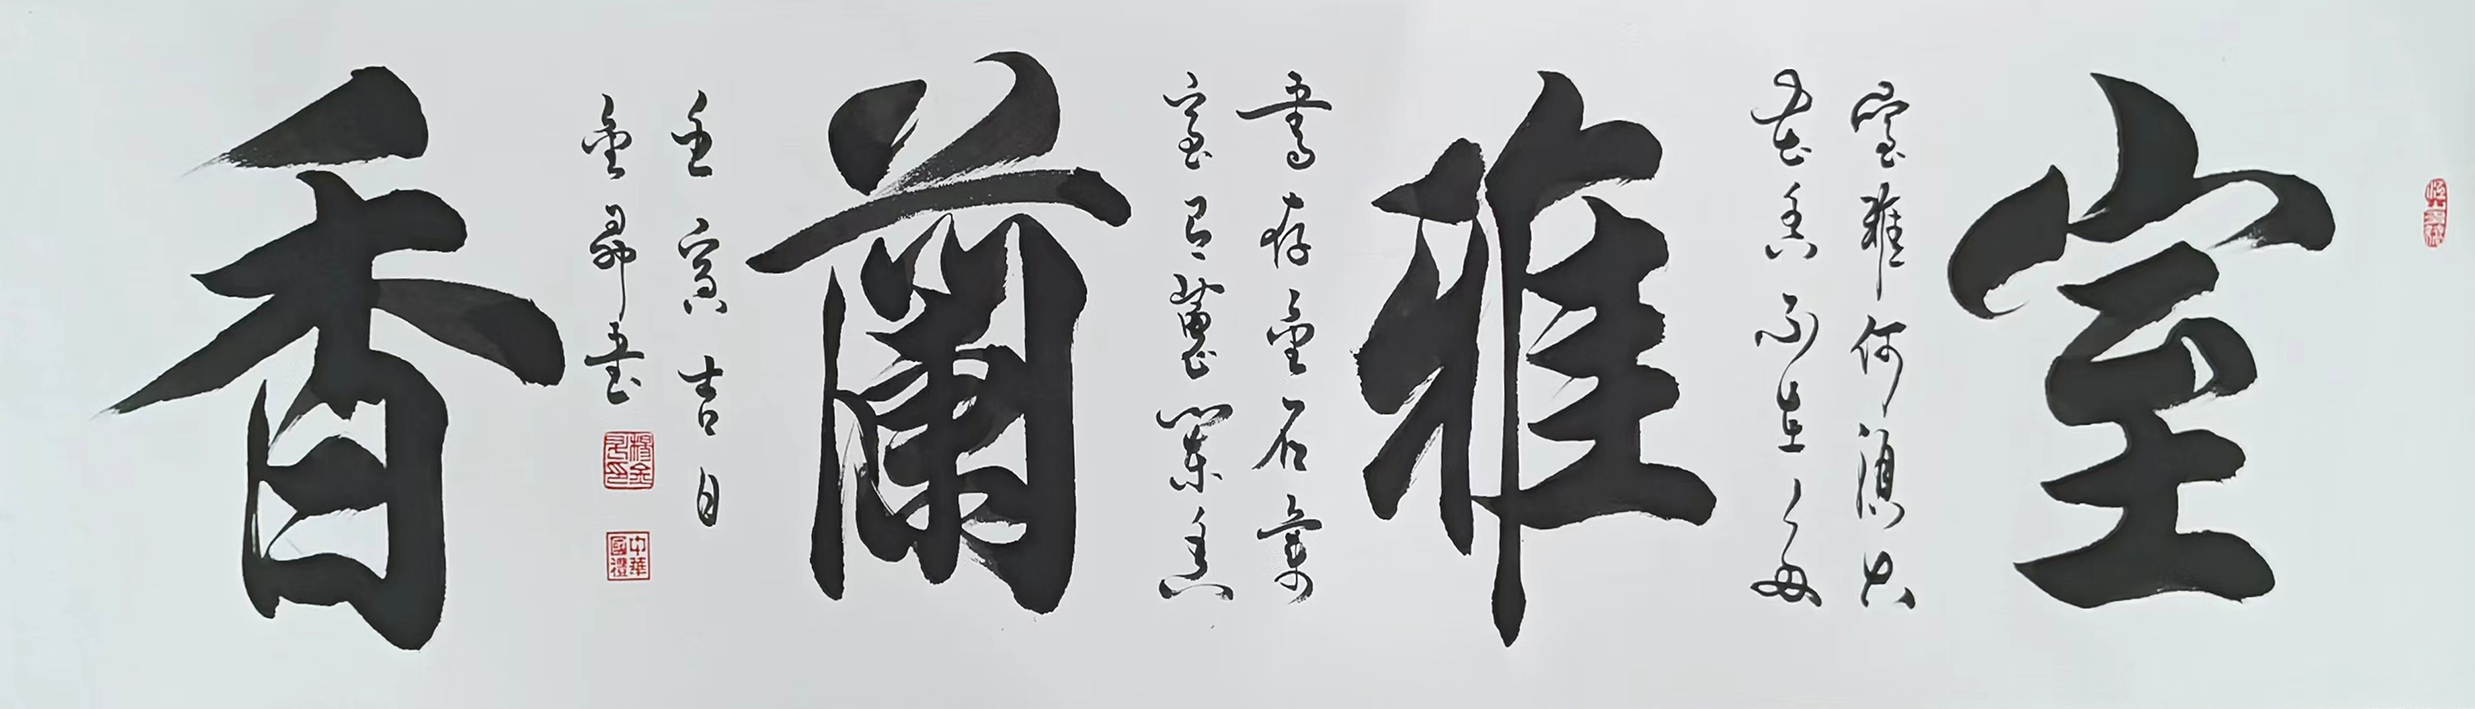 室雅蘭香
室雅何須大
花香不在多
書存金石氣
室有蕙蘭香
壬寅吉日
金昴書
中華國禮